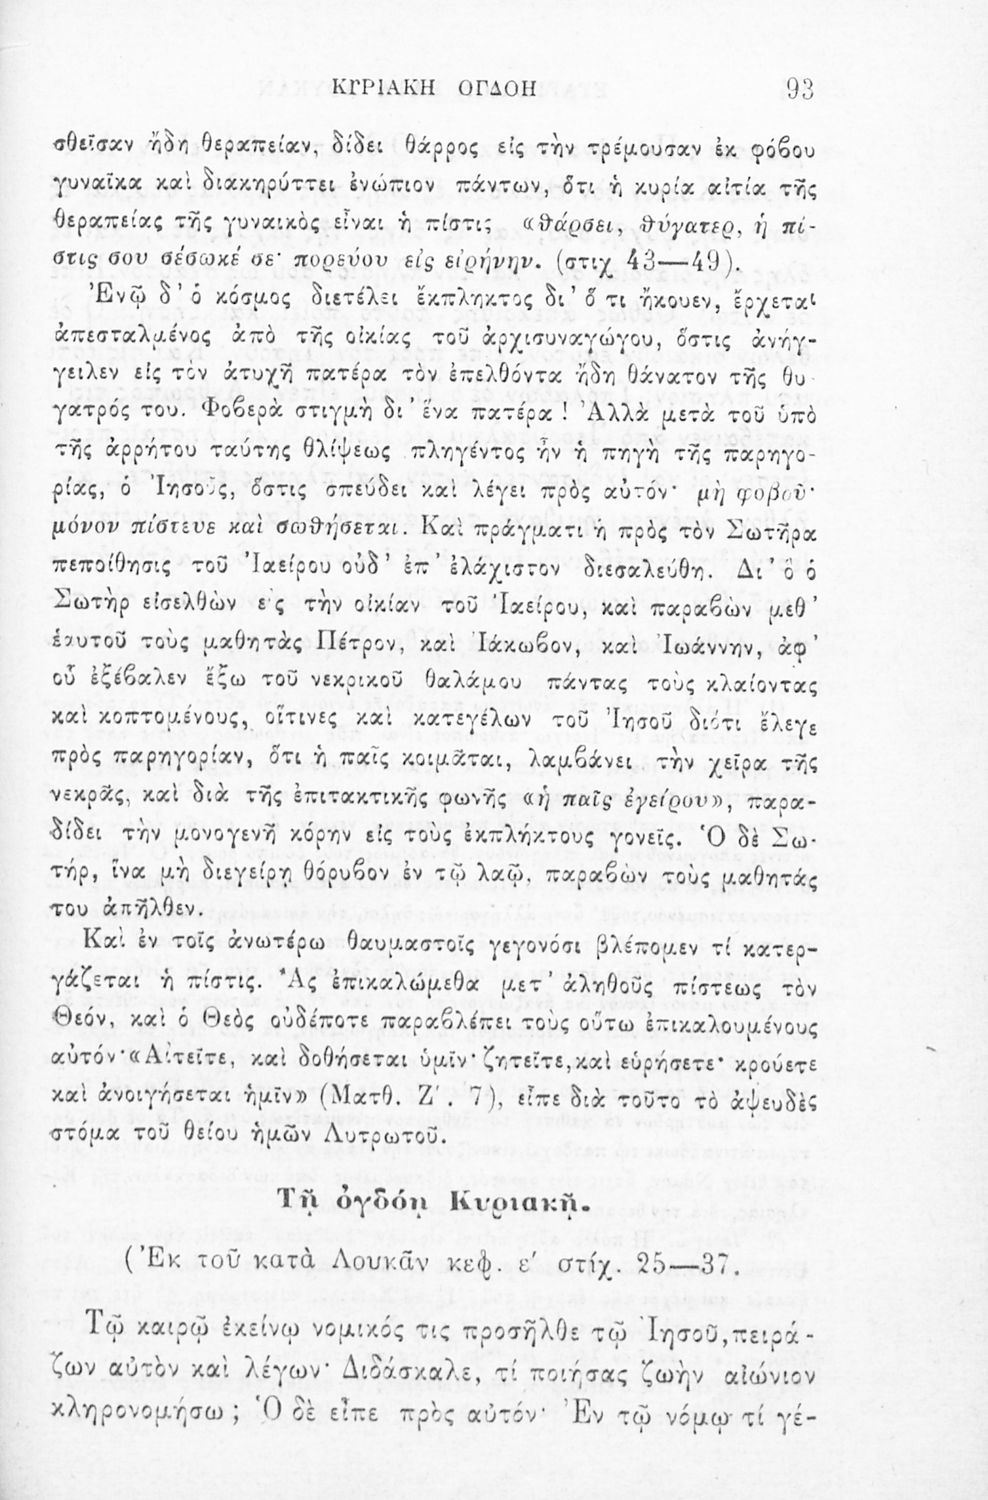 ΚΥΡΙΑΚΗ ΟΓΔΟΗ 93
σθεῖσαν ἤδη θεραπείαν, δίδει θάρρος εἰς τὴν τρέμουσαν ἐκ φόβου
γυναῖκα καὶ διακηρύττει ἐνώπιον πάντων, ὅτι ἡ κυρία αἰτία τῆς
θεραπείας τῆς γυναικὸς εἶναι ἡ πίστις «θάρσει, θύγατερ, ἡ πί-
στις σου σέσωκέ σε· πορεύου εἰς εἰρήνην. (στιχ 43—49).
Ἐνῷ δ’ ὁ κόσμος διετέλει ἔκπληκτος δι’ ὅ τι ἤκουεν, ἔρχεται
ἀπεσταλμένος ἀπὸ τῆς οἰκίας τοῦ ἀρχισυναγώγου, ὅστις ἀνήγ-
γειλεν εἰς τὸν ἀτυχῆ πατέρα τὸν ἐπελθόντα ἤδη θάνατον τῆς θυ-
γατρός του. Φοβερὰ στιγμὴ δι’ ἕνα πατέρα! Ἀλλὰ μετὰ τοῦ ὑπὸ
τῆς ἀρρήτου ταύτης θλίψεως πληγέντος ἦν ἡ πηγὴ τῆς παρηγο-
ρίας, ὁ Ἰησοῦς, ὅστις σπεύδει καὶ λέγει πρὸς αὐτόν· μὴ φοβοῦ·
μόνον πίστευε καὶ σωθήσεται. Καὶ πράγματι ἡ πρὸς τὸν Σωτῆρα
πεποίθησις τοῦ Ἰαείρου οὐδ’ ἐπ’ ἐλάχιστον διεσαλεύθη. Δι’ ὃ ὁ
Σωτὴρ εἰσελθὼν εἰς τὴν οἰκίαν τοῦ Ἰαείρου, καὶ παραβὼν μεθ’
ἑαυτοῦ τοὺς μαθητὰς Πέτρον, καὶ Ἰάκωβον, καὶ Ἰωάννην, ἀφ’
οὗ ἐξέβαλεν ἔξω τοῦ νεκρικοῦ θαλάμου πάντας τοὺς κλαίοντας
καὶ κοπτομένους, οἵτινες καὶ κατεγέλων τοῦ Ἰησοῦ διότι ἔλεγε
πρὸς παρηγορίαν, ὅτι ἡ παῖς κοιμᾶται, λαμβάνει τὴν χεῖρα τῆς
νεκρᾶς, καὶ διὰ τῆς ἐπιτακτικῆς φωνῆς «ἡ παῖς ἐγείρου», παρα-
δίδει τὴν μονογενῆ κόρην εἰς τοὺς ἐκπλήκτους γονεῖς. Ὁ δὲ Σω-
τήρ, ἵνα μὴ διεγείρῃ θόρυβον ἐν τῷ λαῷ, παραβὼν τοὺς μαθητάς
του ἀπῆλθεν.
Καὶ ἐν τοῖς ἀνωτέρω θαυμαστοῖς γεγονόσι βλέπομεν τί κατερ-
γάζεται ἡ πίστις. Ἂς ἐπικαλώμεθα μετ’ ἀληθοῦς πίστεως τὸν
Θεόν, καὶ ὁ Θεὸς οὐδέποτε παραβλέπει τοὺς οὕτω ἐπικαλουμένους
αὐτόν·«Αἰτεῖτε, καὶ δοθήσεται ὑμῖν· ζητεῖτε, καὶ εὑρήσετε· κρούετε
καὶ ἀνοιγήσεται ἡμῖν» (Ματθ. Ζ΄. 7), εἶπε διὰ τοῦτο τὸ ἀψευδὲς
στόμα τοῦ θείου ἡμῶν Λυτρωτοῦ.
Τῇ ὀγδόῃ Κυριακῇ.
(Ἐκ τοῦ κατὰ Λουκᾶν κεφ. ε΄ στίχ. 25—37.
Τῷ καιρῷ ἐκείνῳ νομικός τις προσῆλθε τῷ Ἰησοῦ, πειρά-
ζων αὐτὸν καὶ λέγων· Διδάσκαλε, τί ποιήσας ζωὴν αἰώνιον
κληρονομήσω; Ὁ δὲ εἶπε πρὸς αὐτόν· Ἐν τῷ νόμῳ τί γέ-